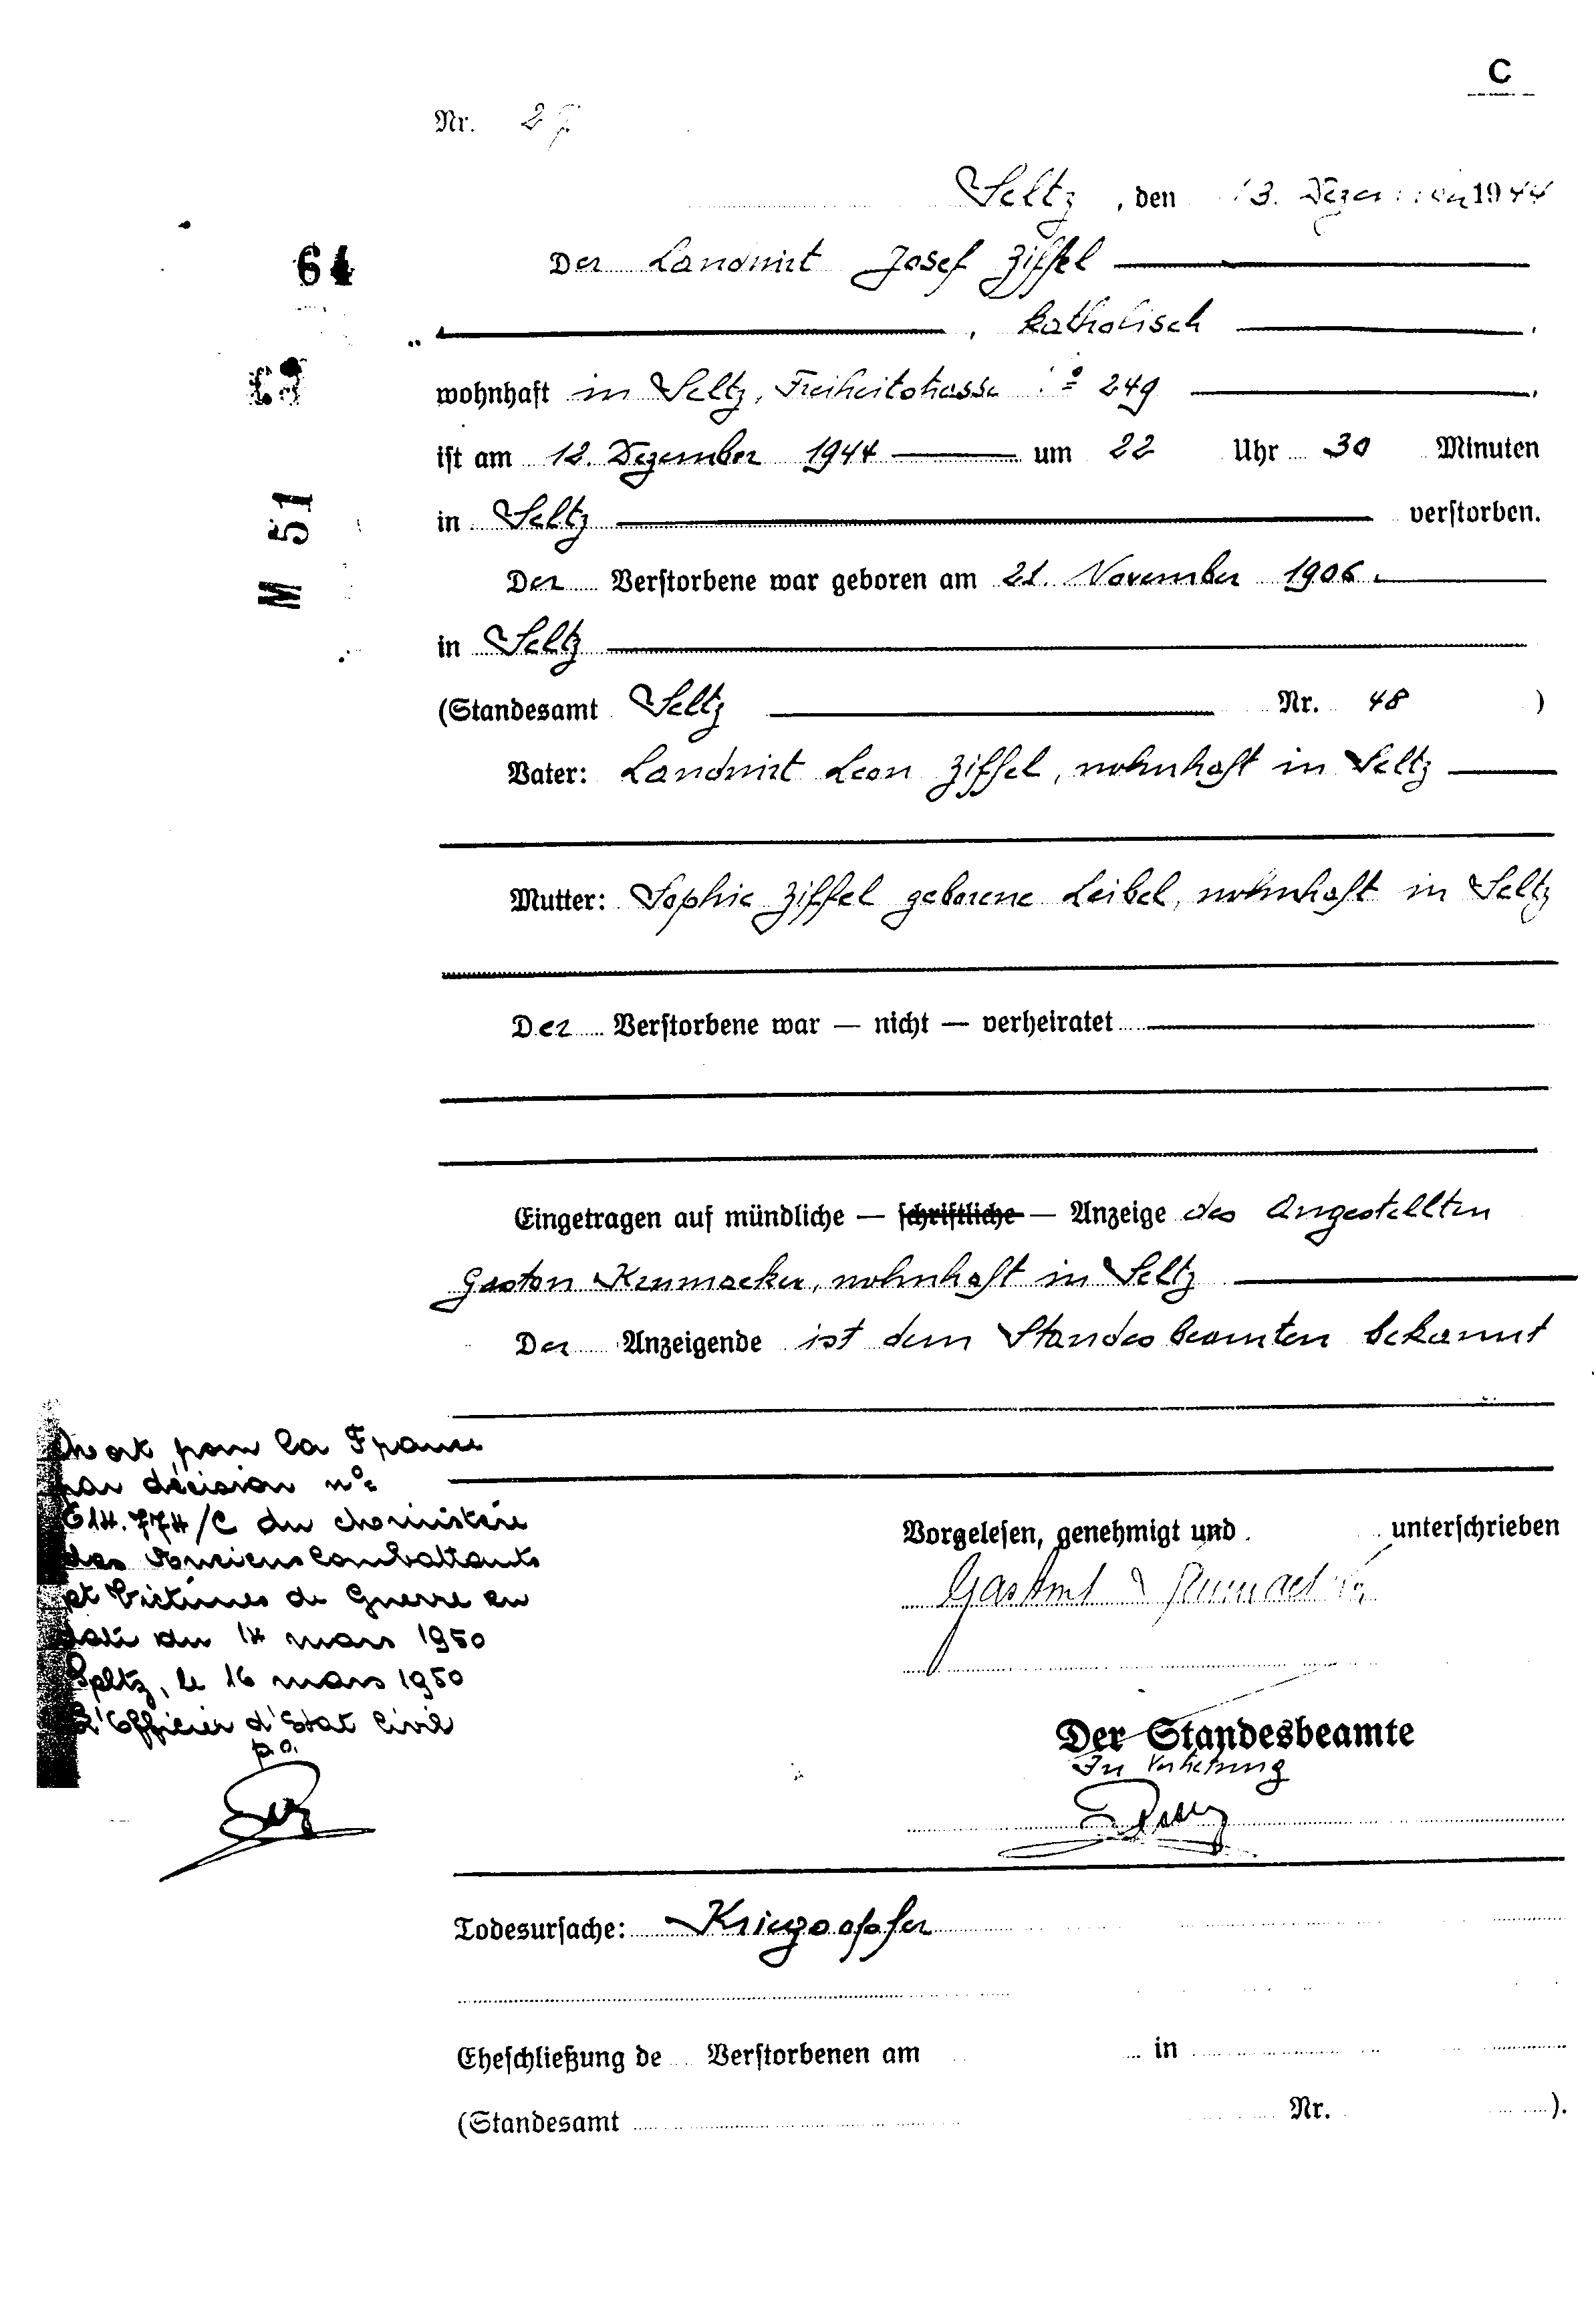 C
Nr. 27
Seltz, den 13. Dezember 1944
64
Der Landwirt Josef Ziffel
, katholisch ,
wohnhaft in Seltz, Freiheitstrasse No 249 ,
ist am 12. Dezember 1944 um 22 Uhr 30 Minuten
M 51
in Seltz verstorben.
Der Verstorbene war geboren am 21. November 1906
in Seltz
(Standesamt Seltz Nr. 48 )
Vater: Landwirt Leon Ziffel, wohnhaft in Seltz
Mutter: Sophie Ziffel geborene Leibel, wohnhaft in Seltz
Der Verstorbene war — nicht — verheiratet
Eingetragen auf mündliche — schriftliche — Anzeige des Angestellten
Gaston Kennmacker, wohnhaft in Seltz
Der Anzeigende ist dem Standesbeamten bekannt
Mort pour la France
par décision no
614.774/C du Ministère
des Anciens Combattants
et Victimes de Guerre en
date du 14 mars 1950
Seltz, le 16 mars 1950
L'Officier d'Etat Civil
p.o.
Vorgelesen, genehmigt und unterschrieben
Der Standesbeamte
In Vertretung
Todesursache: Kriegsopfer
Eheschließung de Verstorbenen am in
(Standesamt Nr. ).